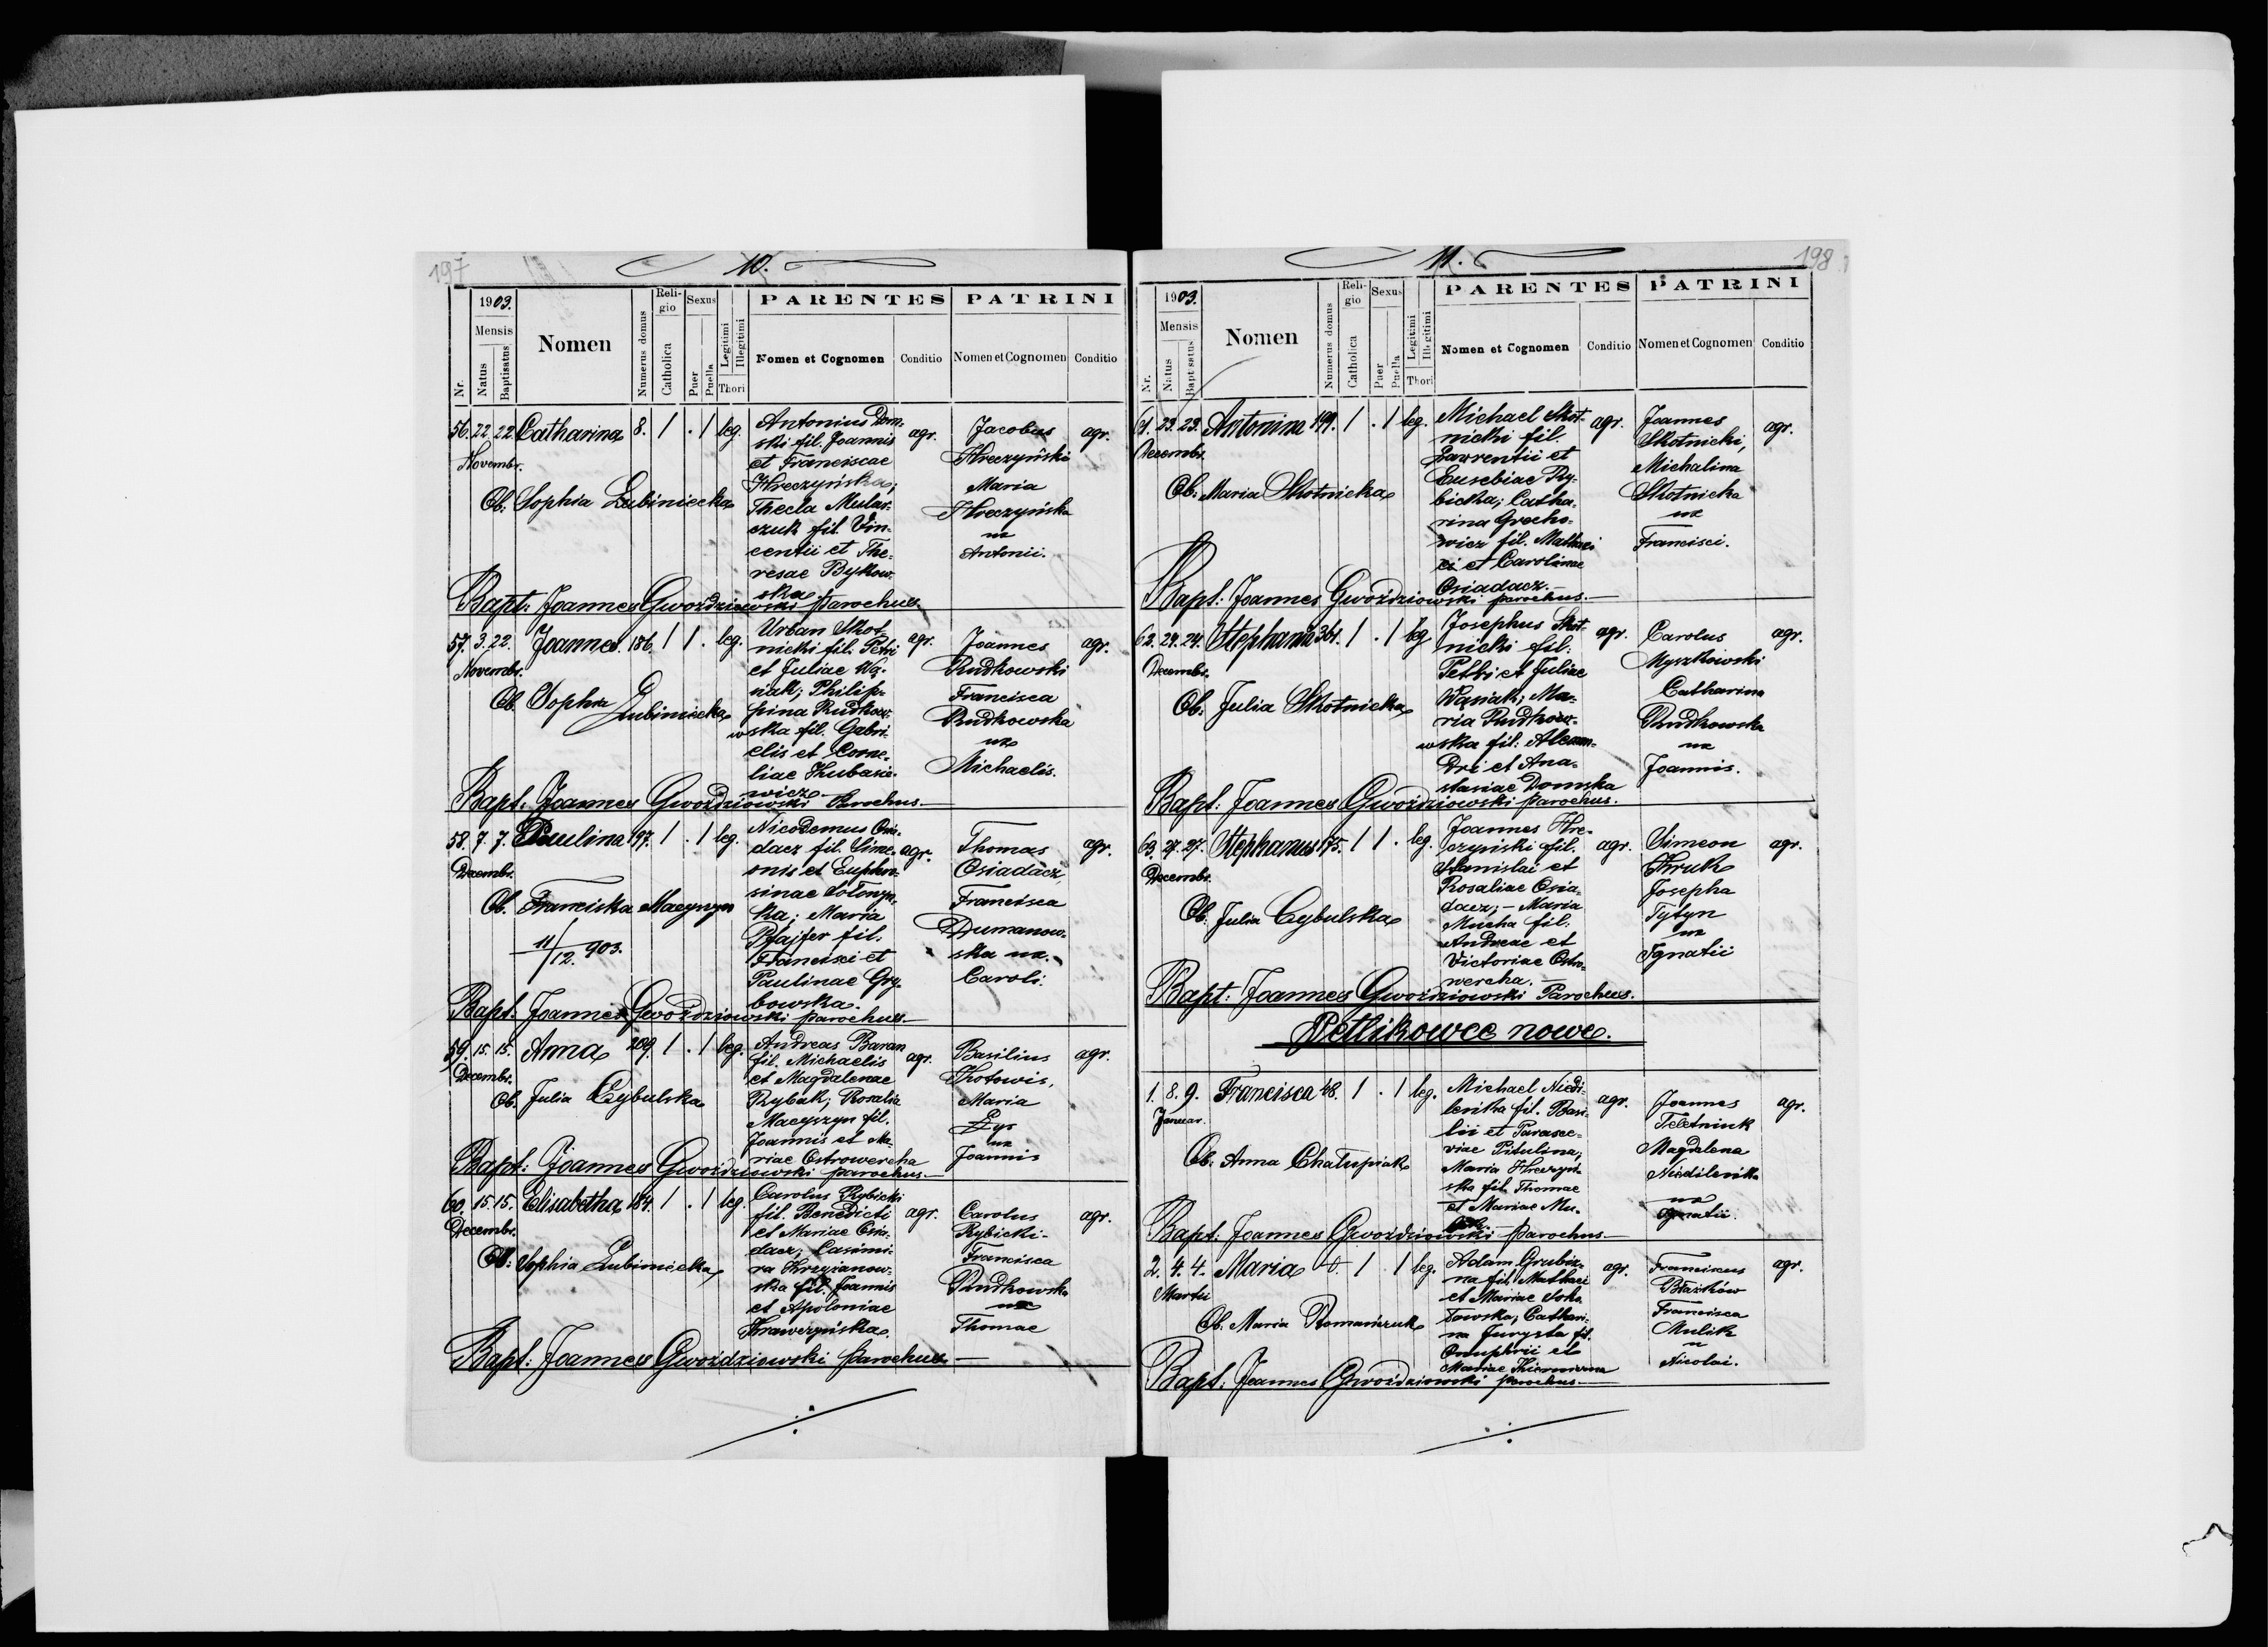 197
10.
1903.
Nr.
Mensis
Natus
Baptisatus
Nomen
Numerus domus
Religio
Catholica
Sexus
Puer
Puella
Legitimi
Illegitimi
Thori
PARENTES
Nomen et Cognomen
Conditio
PATRINI
Nomen et Cognomen
Conditio
56. 22. 22. Catharina 8. 1 . 1 leg.
Novembr.
Ob. Sophia Lubiniecka
Antonius Dom-
ski fil. Joannis
et Franciscae
Hreczyńska;
Thecla Mular-
czuk fil. Vin-
centii et The-
resae Bykow-
ska.
agr.
Jacobus
Hreczyński
Maria
Hreczyńska
ux
Antonii.
agr.
Bapt: Joannes Gwoździowski parochus.
57. 3. 22. Joannes. 186. 1 1 . leg.
Novembr.
Ob. Sophia
Lubiniecka
Urban Skot-
nicki fil. Petri
et Juliae Wą-
siak; Philip-
pina Rudkow-
wska fil. Gabri-
elis et Corne-
liae Kubasie-
wicz
agr.
Joannes
Rudkowski
Francisca
Rudkowska
ux
Michaelis.
agr.
Bapt: Joannes Gwoździowski Parochus
58. 7. 7. Paulina 197. 1 . 1 leg.
Decembr.
Ob. Franciska Macyszyn
11/12. 903.
Nicodemus Osia-
dacz fil. Sime-
onis et Euphro-
sinae
ka; Maria
Pfajfer fil.
Francisci et
Paulinae Gry-
bowska.
agr.
Thomas
Osiadacz
Francisca
Dumanow-
ska ux.
Caroli.
agr.
Bapt. Joannes Gwoździowski parochus
59. 15. 15. Anna 209. 1 . 1 leg.
Decembr.
Ob. Julia Cybulska
Andreas Baran
fil. Michaelis
et Magdalenae
Rybak; Rosalia
Macyszyn fil.
Joannis et Ma-
riae Ostrowercha
agr.
Basilius
Kotowis,
Maria
Łys
ux
Joannis
agr.
Bapt: Joannes Gwoździowski parochus
60. 15. 15. Elisabetha 184. 1 . 1 leg.
Decembr.
Ob: Sophia Lubiniecka
Carolus Rybicki
fil. Benedicti
et Mariae Osia-
dacz; Casimi-
ra Krzyżanow-
ska fil. Joannis
et Apoloniae
Krawczyńska.
agr.
Carolus
Rybicki
Francisca
Rudkowska
ux
Thomae
agr.
Bapt: Joannes Gwoździowski parochus
198
11.
1903.
Nr.
Mensis
Natus
Baptisatus
Nomen
Numerus domus
Religio
Catholica
Sexus
Puer
Puella
Legitimi
Illegitimi
Thori
PARENTES
Nomen et Cognomen
Conditio
PATRINI
Nomen et Cognomen
Conditio
61. 23. 23. Antonina 199. 1 . 1 leg.
Decembr.
Ob: Maria Skotnicka
Michael Skot-
nicki fil.
Lawrentii et
Eusebiae Ry-
bicka; Catha-
rina Grecho-
wicz fil. Mathaei
et Carolinae
Osiadacz.
agr.
Joannes
Skotnicki,
Michalina
Skotnicka
ux
Francisci.
agr.
Bapt: Joannes Gwoździowski parochus.
62. 24. 24. Stephania 364. 1 . 1 leg
Decembr.
Ob: Julia Skotnicka
Josephus Skot-
nicki fil:
Petri et Juliae
Wąsiak; Ma-
ria Rudkow-
wska fil: Alexan-
dri et Ana-
stasiae Domska
agr.
Carolus
Myszkowski
Catharina
Rudkowska
ux
Joannis.
agr.
Bapt: Joannes Gwoździowski parochus.
63. 27. 27. Stephanus 175. 1 1 . leg.
Decembr.
Ob: Julia Cybulska
Joannes Hre-
czyński fil.
Stanislai et
Rosaliae Osia-
dacz; Maria
Mucha fil.
Andreae et
Victoriae Ostro-
wercha.
agr.
Simeon
Kruk
Josepha
Tytyn
ux
Ignatii
agr.
Bapt: Joannes Gwoździowski Parochus.
Petlikowce nowe.
1. 8. 9. Francisca 48. 1 . 1 leg.
Januar.
Ob: Anna Chałupiak
Michael Niedi-
lenka fil. Basi-
lii et Parasce-
viae Pitulina;
Maria Hreczyń-
ska fil. Thomae
et Mariae Mu-
agr.
Joannes
Teletniuk
Magdalena
Niedilenka
ux
Ignatii.
agr.
Bapt: Joannes Gwoździowski parochus
2. 4. 4. Maria 1 . 1 leg.
Martii
Ob. Maria Romańczuk
Adam Grubiz-
na fil. Mathaei
et Mariae Soko-
łowska; Cathari-
na Jurysta fil.
Onuphrii et
Mariae
agr.
Franciscus
Błażków
Francisca
Mulik
u
Nicolai.
agr.
Bapt: Joannes Gwoździowski parochus